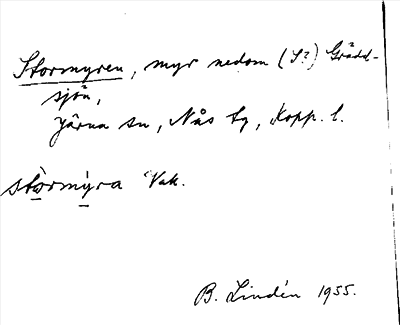 Stormyren, myr nedom (S?) Grädd-
sjön,
Järna sn, Nås tg, Kopp. l.
stormyra Vak.
B. Lindén 1955.